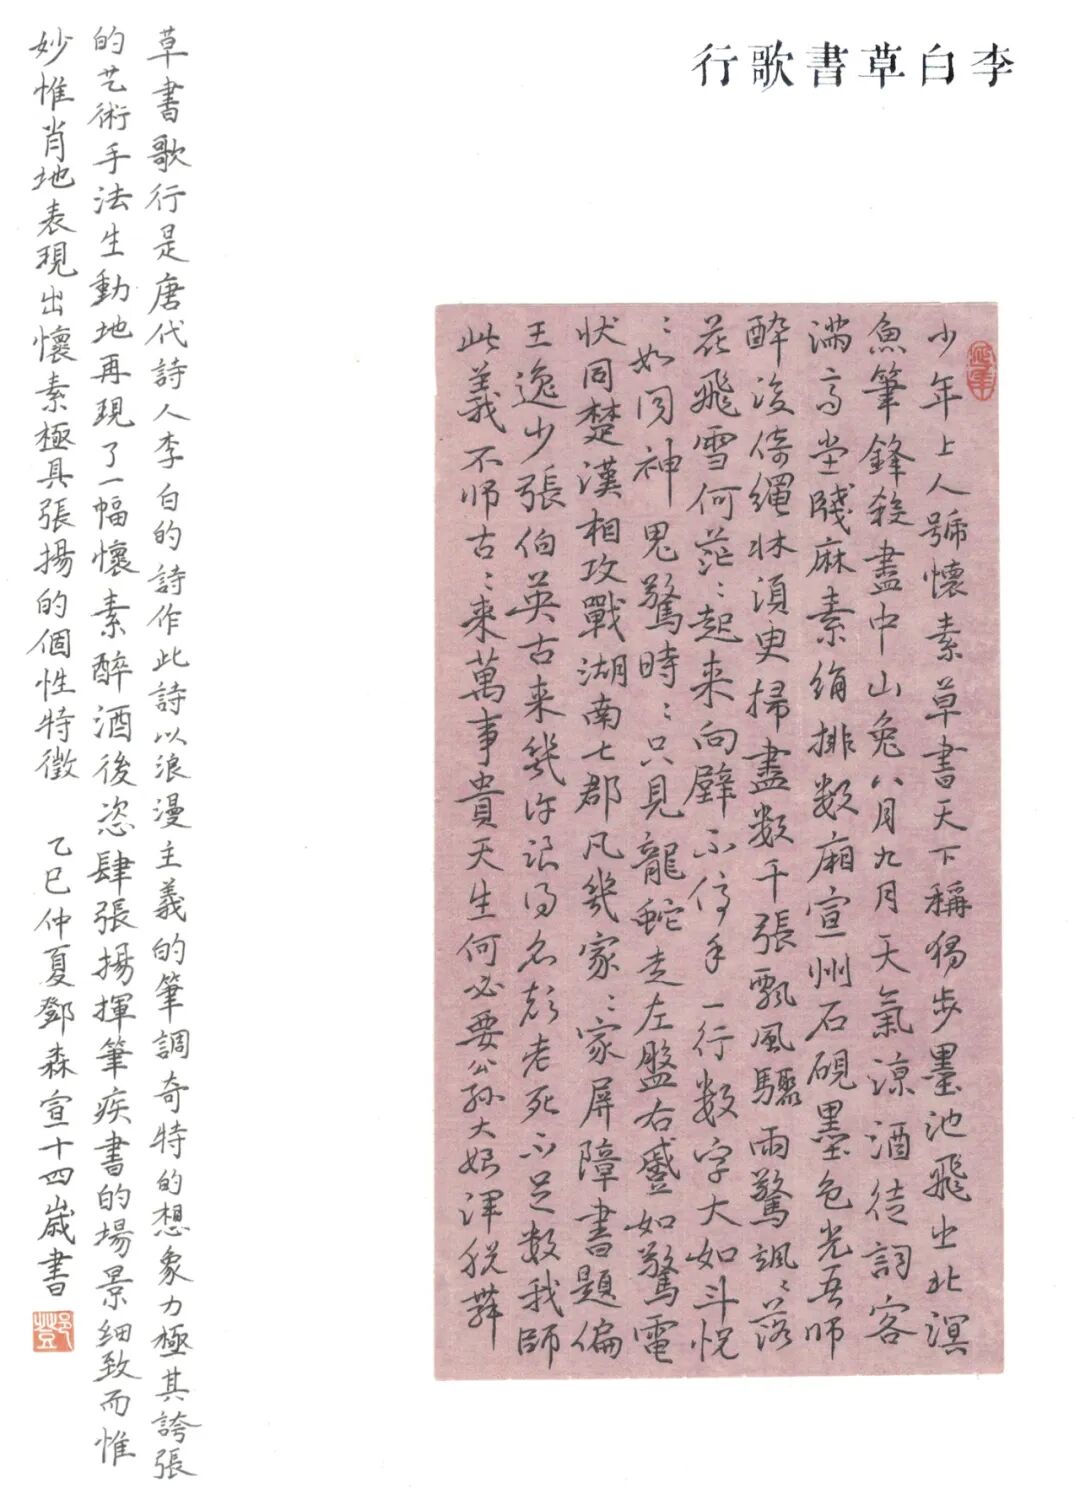 李白草書歌行
少年上人號懷素草書天下稱獨步墨池飛出北溟
魚筆鋒殺盡中山兔八月九月天氣涼酒徒詞客
滿高堂牋麻素絹排数廂宣州石硯墨色光吾師
醉後倚繩牀須臾掃盡数千張飄風驟雨驚颯〻落
花飛雪何茫〻起来向壁不停手一行数字大如斗怳
〻如同神鬼驚時〻只見龍蛇走左盤右蹙如驚電
狀同楚漢相攻戰湖南七郡凡幾家〻家屏障書題偏
王逸少張伯英古来幾許浪得名顛老死不足数我師
此義不師古〻来萬事貴天生何必要公孫大娘渾脱舞
草書歌行是唐代詩人李白的詩作此詩以浪漫主義的筆調奇特的想象力極其誇張
的艺術手法生動地再現了一幅懷素醉酒後恣肆張揚揮筆疾書的場景細致而惟
妙惟肖地表現出懷素極具張揚的個性特徵 乙巳仲夏鄧森宣十四歲書